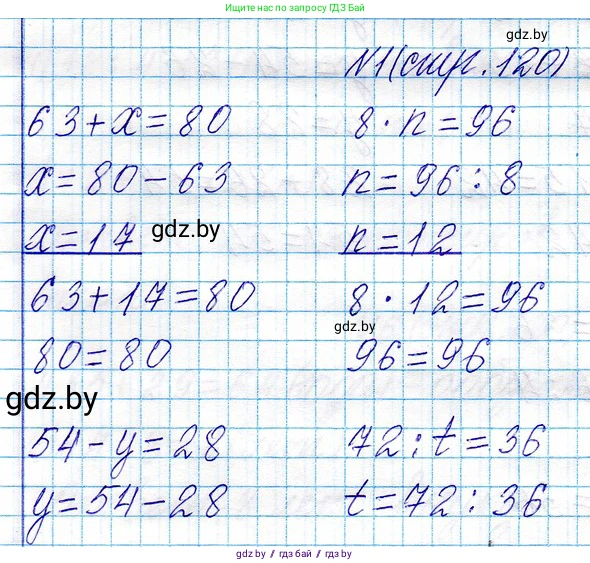 нашли по запросу ГДЗ Бай
gdz.by
№1(стр.120)
63+x=80
8·n=96
x=80-63
n=96:8
x=17
gdz.by
n=12
63+17=80
8·12=96
gdz.by
80=80
96=96
gdz.by
54-y=28
72:t=36
y=54-28
t=72:36
gdz.by / гдз бай / gdz.by